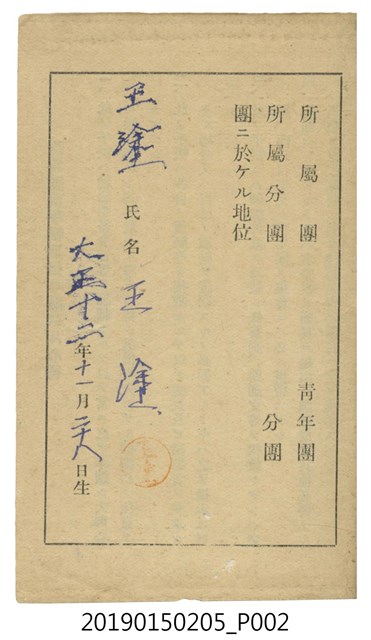 所屬團 青年團
所屬分團 分團
團ニ於ケル地位
氏名 王塗
王塗
大正十二年十一月二十八日生
20190150205_P002